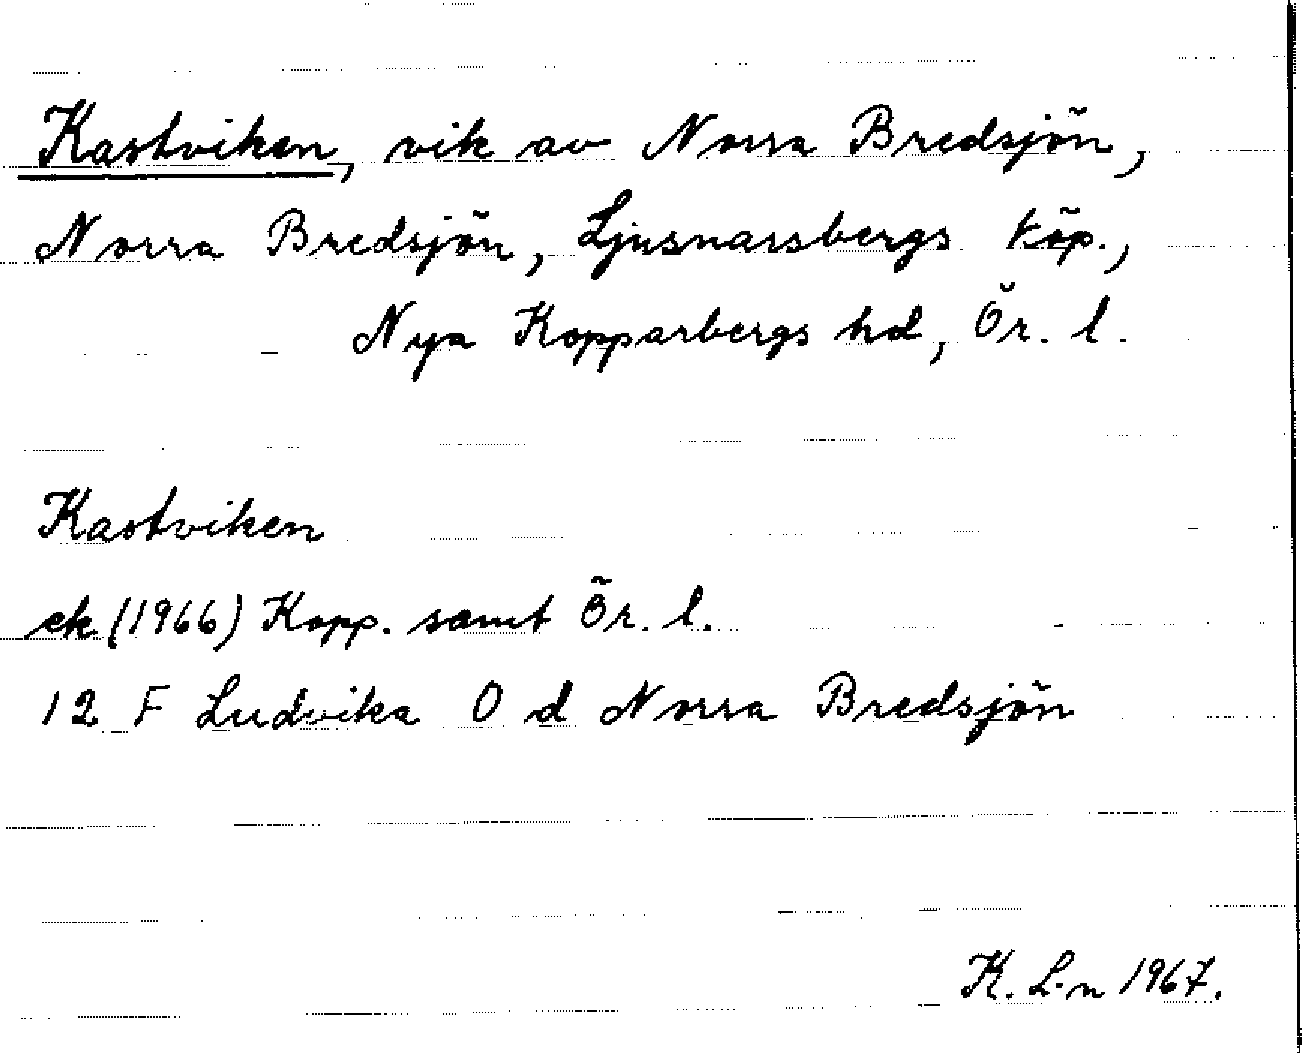 Kastviken, vik av Norra Bredsjön,
Norra Bredsjön, Ljusnarsbergs köp.,
Nya Kopparbergs hd, Ör. l.
Kastviken
ek (1966) Kopp. samt Ör. l.
12 F Ludvika O d Norra Bredsjön
K. L-n 1967.